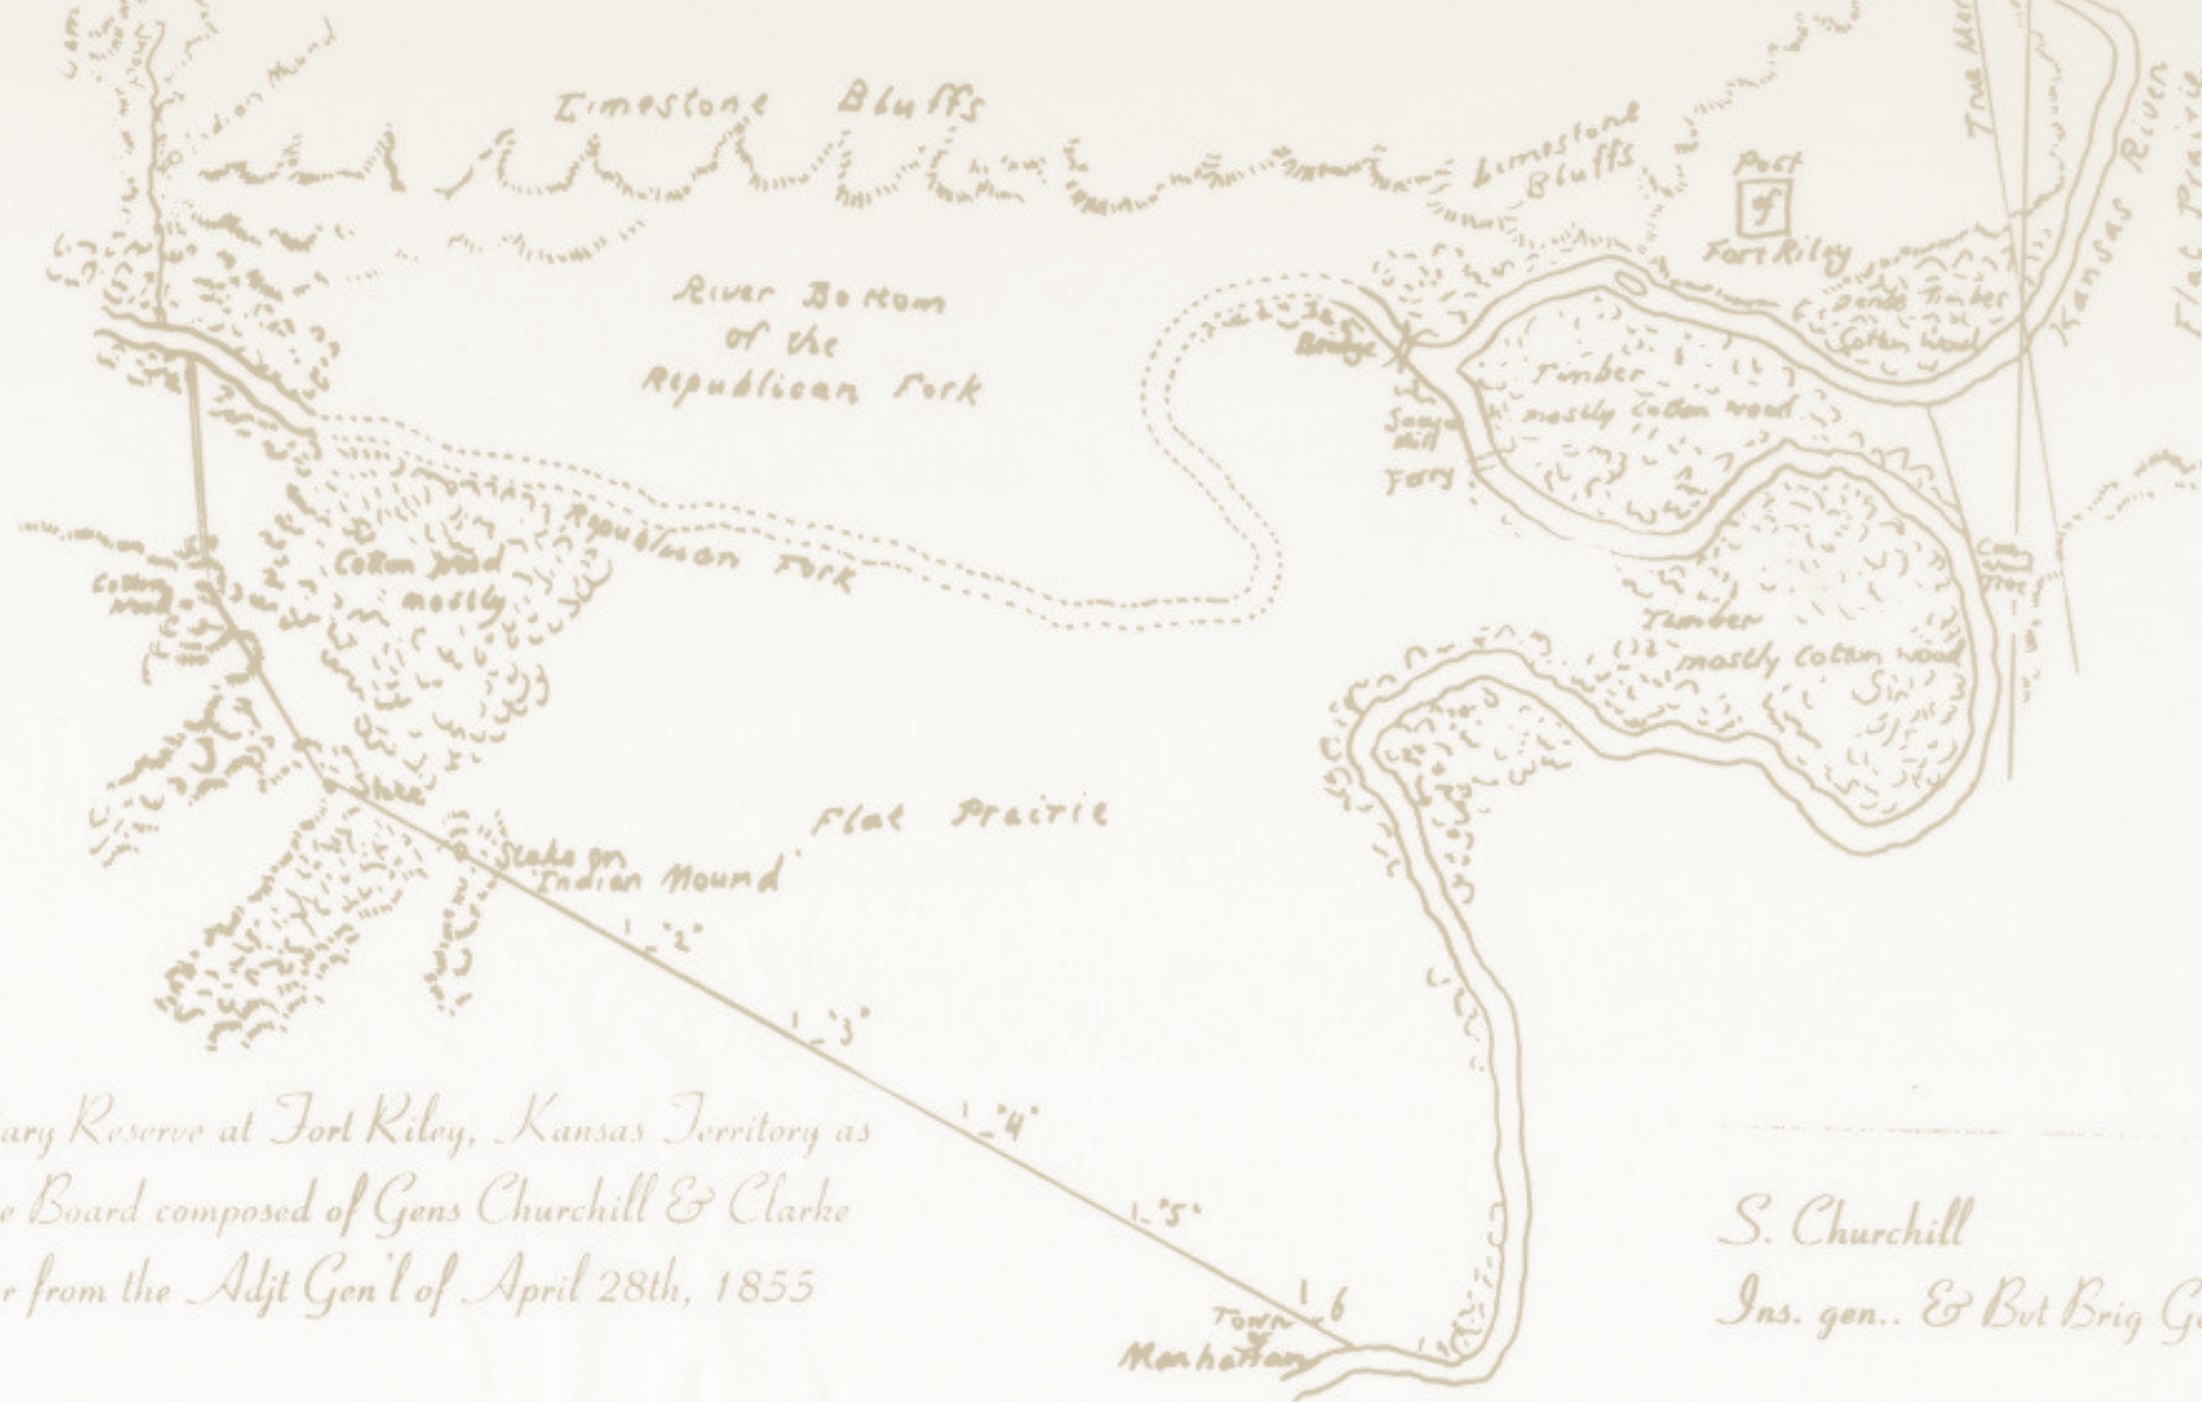 Limestone Bluffs
Limestone
Bluffs
Post
of
Fort Riley
True Mer
Kansas River
Flat Prairie
River Bottom
of the
Republican Fork
Dense Timber
Cotton Wood
Bridge
Timber
mostly Cotton wood
Mill
Ferry
Republican Fork
Cotton Wood
mostly
Cotton
Wood
Timber
mostly Cotton wood
Tree
Stake
Flat Prairie
Stake on
Indian Mound
1 "2"
1 "3"
1 "4"
1 "5"
1 6
Town
of
Manhattan
ary Reserve at Fort Riley, Kansas Territory as
e Board composed of Gens Churchill & Clarke
r from the Adjt Gen'l of April 28th, 1855
S. Churchill
Ins. gen.. & Bvt Brig Ge